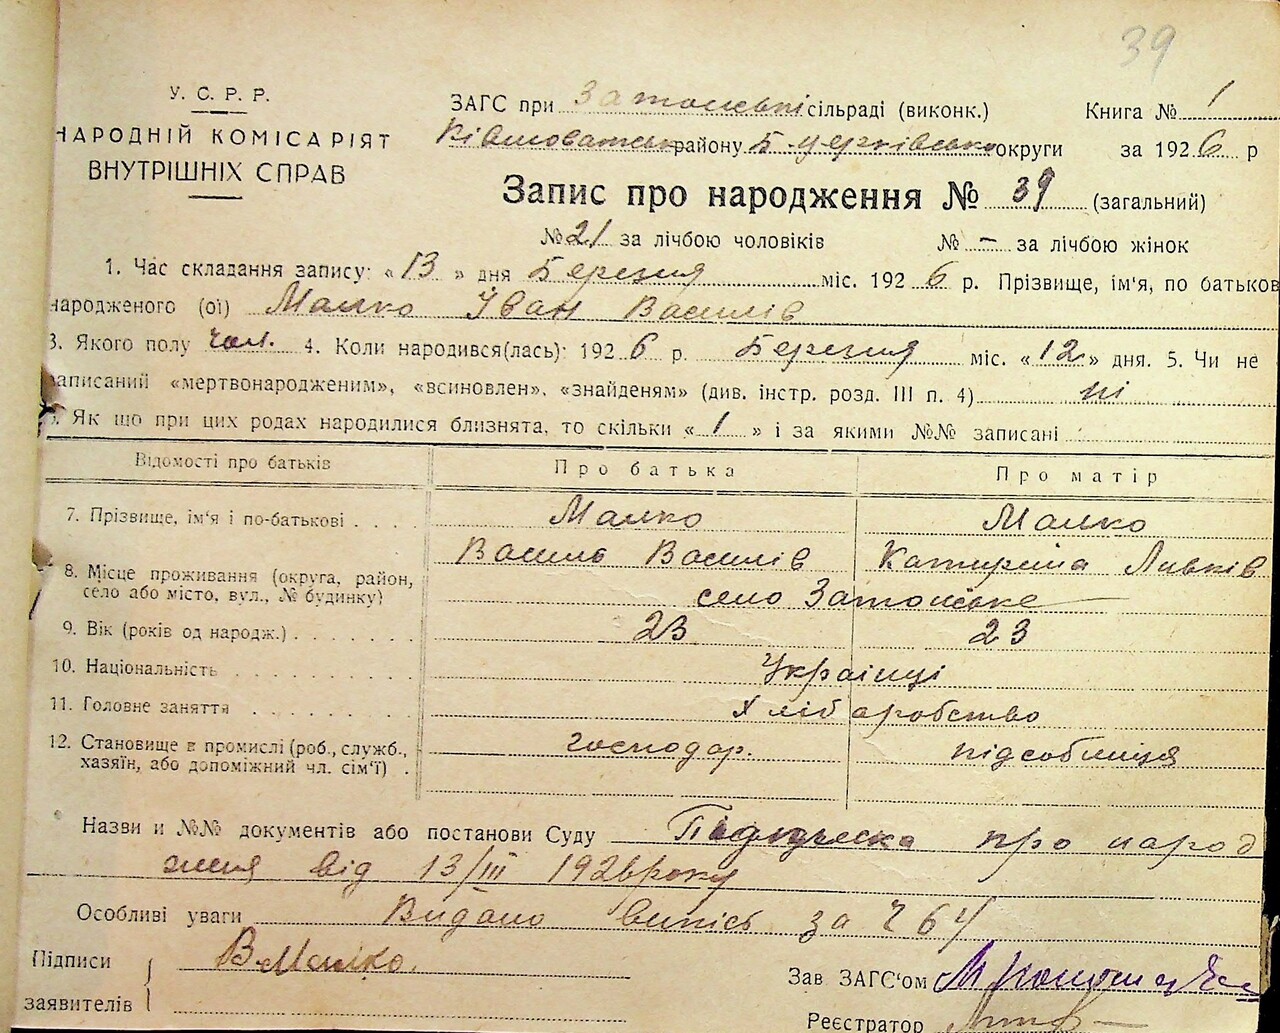 39
У. С. Р. Р.
НАРОДНІЙ КОМІСАРІЯТ
ВНУТРІШНІХ СПРАВ
ЗАГС при Затонські сільраді (виконк.) Книга № 1
району Б-церківсько округи за 1926 р
Запис про народження № 39 (загальний)
№ 21 за лічбою чоловіків № – за лічбою жінок
1. Час складання запису: « 13 » дня Березня міс. 1926 р. Прізвище, ім'я, по батьков
народженого (ої) Малко Іван Василів
3. Якого полу чол. 4. Коли народився(лась): 1926 р. Березня міс. «12» дня. 5. Чи не
записаний «мертвонародженим», «всиновлен», «знайденям» (див. інстр. розд. III п. 4) ні
. Як що при цих родах народилися близнята, то скільки « 1 » і за якими №№ записані
Відомості про батьків Про батька Про матір
7. Прізвище, ім'я і по-батькові . . . . Малко Малко
Василь Василів Катерина Ливків
8. Місце проживання (округа, район,
село або місто, вул., № будинку) село Затонське
9. Вік (років од народж.) . . . . . . . 23 23
10. Національність . . . . . . . . . Українці
11. Головне заняття . . . . . . . . Хліборобство
12. Становище в промислі (роб., служб.,
хазяїн, або допоміжний чл. сім'ї) . господар. підсобниця
Назви и №№ документів або постанови Суду про народ
женя від 13/III 1926 року
Особливі уваги Видано випісь за Ч 64
Підписи В Малко.
заявителів
Зав. ЗАГС'ом
Реєстратор